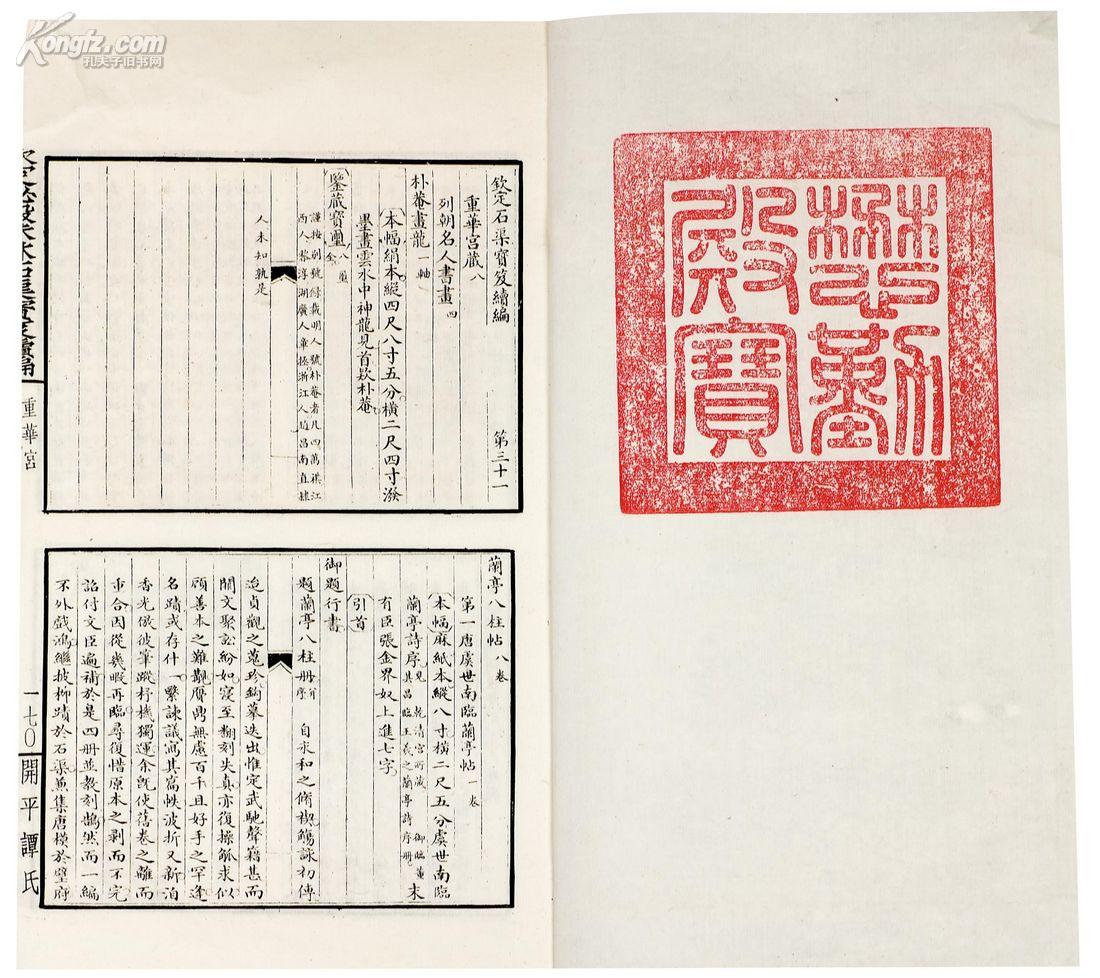 Kongfz.com
孔夫子旧书网
懋勤
殿寶
欽定石渠寶笈續編
第三十一
重華宮藏八
列朝名人書畫四
朴菴畫龍一軸
本幅絹本縱四尺八寸五分橫二尺四寸潑
墨畫雲水中神龍見首款朴菴
鑒藏寶璽八璽全
謹按別號錄載明人號朴菴者凡四萬祺江
西人黎淳湖廣人章拯浙江人趙昌南直隸
人未知孰是
蘭亭八柱帖八卷
第一唐虞世南臨蘭亭帖一卷
本幅麻紙本縱八寸橫二尺五分虞世南臨
蘭亭詩序見乾清宮所藏御臨董其昌臨王羲之蘭亭詩序冊末
有臣張金界奴上進七字
引首
御題行書
題蘭亭八柱冊并序 自永和之脩禊觴詠初傳
迨貞觀之蒐珍鉤摹迭出惟定武馳聲籍甚而
聞文聚訟紛如寖至翻刻失真亦復操觚求似
顧善本之難覯贗鼎無慮百千且好手之罕逢
名蹟或存什一繄諫議寫其篇帙波折又新洎
香光倣彼筆蹤杼機獨運余旣使舊卷之離而
重合因從幾暇再臨尋復惜原本之剥而不完
詒付文臣遍補於是四冊並教刻鵠然而一編
不外戲鴻繼披柳蹟於石渠兼集唐模於壁府
重華宮
一七〇
開平譚氏